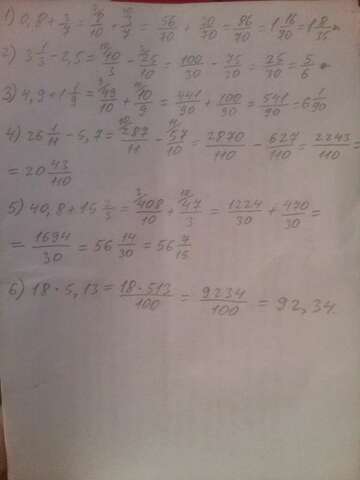 1) 0,8 + 3/7 = 8/10 + 3/7 = 56/70 + 30/70 = 86/70 = 1 16/70 = 1 8/35
2) 3 1/3 - 2,5 = 10/3 - 25/10 = 100/30 - 75/30 = 25/30 = 5/6
3) 4,9 + 1 1/9 = 49/10 + 10/9 = 441/90 + 100/90 = 541/90 = 6 1/90
4) 26 1/11 - 5,7 = 287/11 - 57/10 = 2870/110 - 627/110 = 2243/110 =
= 20 43/110
5) 40,8 + 15 2/3 = 408/10 + 47/3 = 1224/30 + 470/30 =
= 1694/30 = 56 14/30 = 56 7/15
6) 18 · 5,13 = 18·513/100 = 9234/100 = 92,34